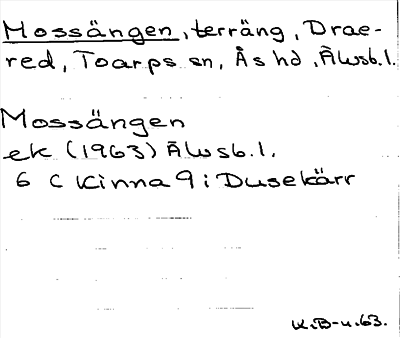 Mossängen, terräng, Drae-
red, Toarps sn, Ås hd, Älvsb.l.
Mossängen
ek (1963) Älvsb.l.
6 C Kinna 9 i Dusekärr
K.B-u.63.